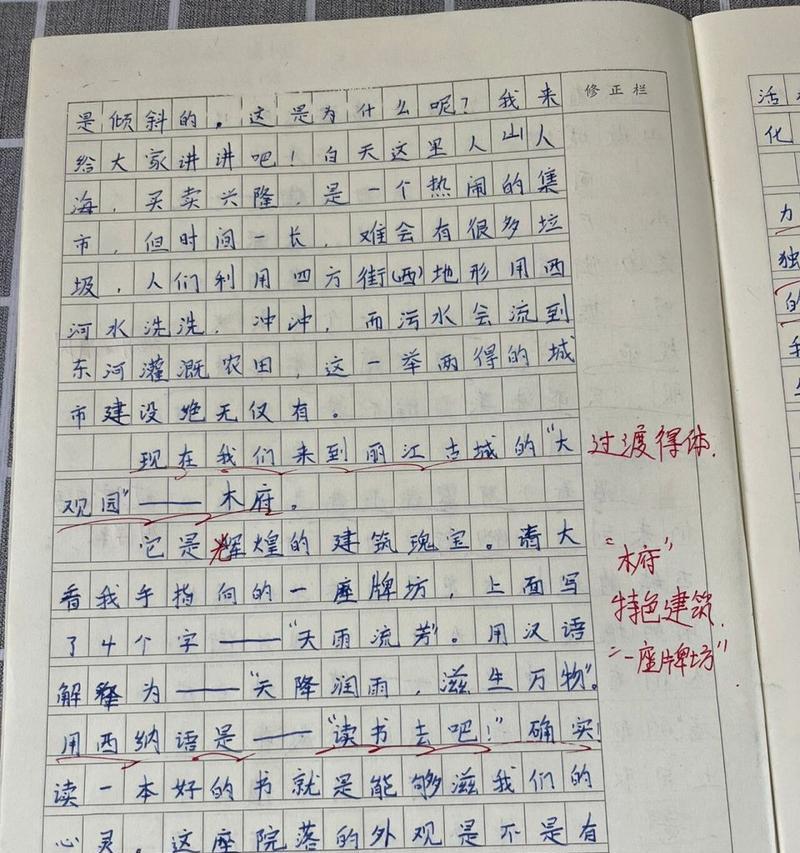 修正栏
是倾斜的。这是为什么呢？我来
给大家讲讲吧！白天这里人山人
海，买卖兴隆，是一个热闹的集
市，但时间一长，难会有很多垃
圾，人们利用四方街(西)地形用西
河水洗洗，冲冲，而污水会流到
东河灌溉农田，这一举两得的城
市建设绝无仅有。
现在我们来到丽江古城的“大
观园”——木府。
过渡得体.
它是辉煌的建筑瑰宝。请大
看我手指向的一座牌坊，上面写
了4个字——“天雨流芳”。用汉语
解释为——“天降润雨，滋生万物”。
用西纳语是——“读书去吧！”确实！
读一本好的书就是能够滋我们的
心灵。这座院落的外观是不是有
“木府”
特色建筑.
“一座牌坊”
活
化
力
独
的
我